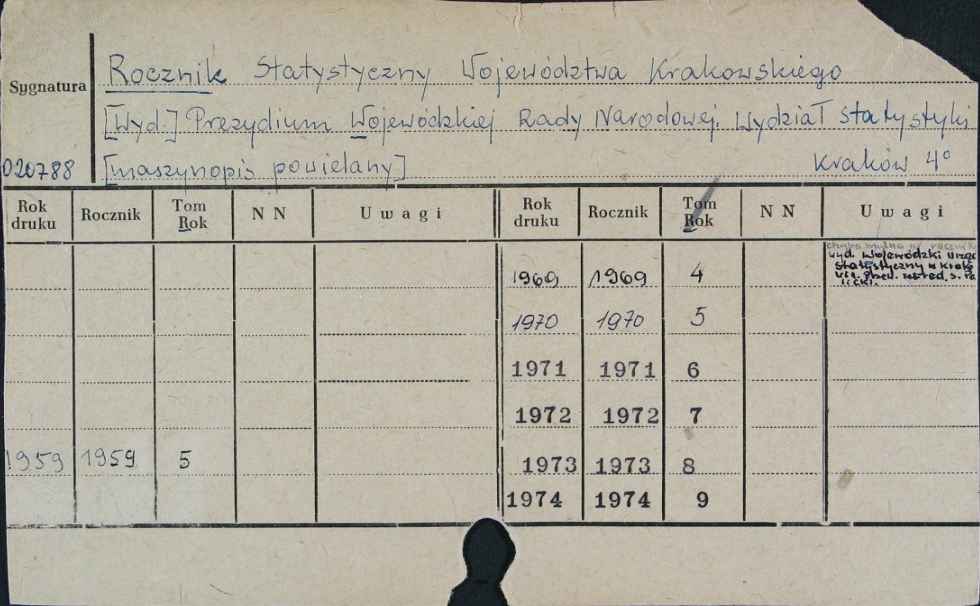 Sygnatura
Rocznik Statystyczny Województwa Krakowskiego
[Wyd.] Prezydium Wojewódzkiej Rady Narodowej. Wydział Statystyki
020788 [maszynopis powielany] Kraków 4°
Rok druku Rocznik Tom Rok NN Uwagi Rok druku Rocznik Tom Rok NN Uwagi
wyd. Wojewódzki Urząd
statystyczny w
1969 1969 4
1970 1970 5
1971 1971 6
1972 1972 7
1959 1959 5 1973 1973 8
1974 1974 9